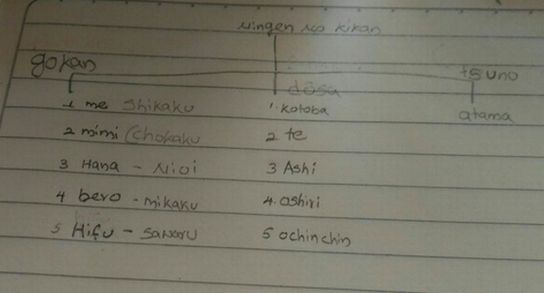 Ningen no kikan
gokan
tsuno
dosa
atama
1 me shikaku
1. kotoba
2 mimi (Chokaku
2 te
3 Hana - Nioi
3 Ashi
4 bero - mikaku
4. oshiri
5 Hifu - sawaru
5 ochinchin